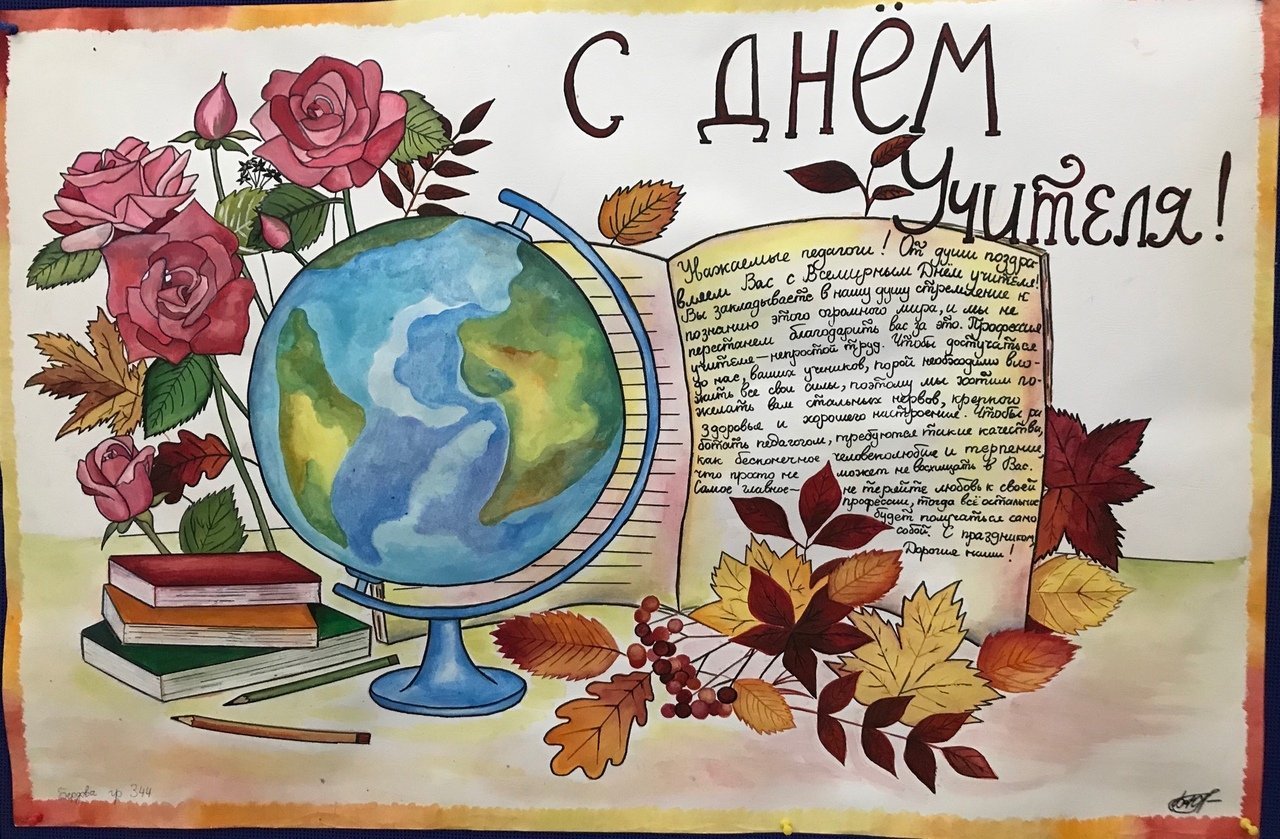 С ДНЁМ
Учителя!
Уважаемые педагоги! От души поздра-
вляем Вас с Всемирным Днём учителя!
Вы закладываете в нашу душу стремление к
познанию этого огромного мира, и мы не
перестанем благодарить вас за это. Профессия
учителя—непростой труд. Чтобы достучаться
до нас, ваших учеников, порой необходимо вло-
жить все свои силы, поэтому мы хотим по-
желать вам стальных нервов, крепкого
здоровья и хорошего настроение. Чтобы ра
ботать педагогом, требуются такие качества,
как бесконечное человеколюбие и терпение,
что просто не может не восхищать в Вас.
Самое главное— не теряйте любовь к своей
профессии, тогда всё остальное
будет получаться само
собой. С праздником
Дорогие наши!
гр 344